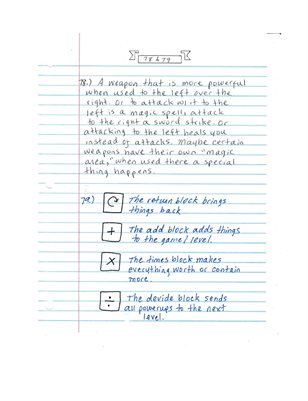 78 & 79
78.) A weapon that is more powerful
when used to the left over the
right. Or to attack w/it to the
left is a magic spell, attack
to the right a sword strike. Or
attacking to the left heals you
instead of attacks. Maybe certain
weapons have their own "magic
area," when used there a special
thing happens.
79.) The return block brings
things back
+ The add block adds things
to the game/level.
× The times block makes
everything worth or contain
more.
÷ The devide block sends
all powerups to the next
level.